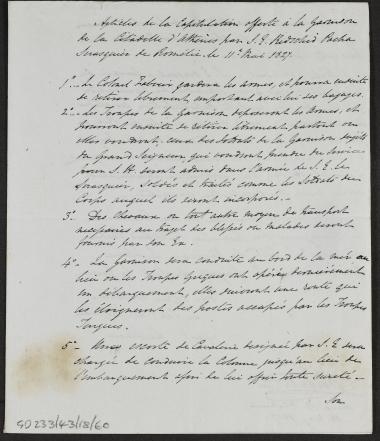 Articles de la Capitulation offerte à la Garnison
de la Citadelle d'Athènes par S. E. Redschid Pacha
Serasquier de Romélie le 11e Mai 1827.
1o_ Le Colonel Fabvier gardera ses armes, et pourra ensuite
se retirer librement, emportant avec lui ses bagages.
2o_ Les Troupes de la Garnison déposeront les armes, et
pourront ensuite se retirer librement partout où
elles voudront. Ceux des Soldats de la Garnison sujets
du Grand Seigneur qui voudront prendre du Service
pour S. H. seront admis dans l'armée de S. E. le
Serasquier, Soldés et traités comme les Soldats des
Corps auquel ils seront incorporés._
3o_ Des Chevaux ou tout autre moyen de transport
nécessaires au trajet des blessés ou malades seront
fournis par Son Ex.
4o_ La Garnison sera conduite au bord de la mer au
lieu où les Troupes Grecques ont opéré dernièrement
un débarquement, elles suivront une route qui
les éloigneront des postes occupés par les Troupes
Turques._
5o_ Une escorte de Cavalerie désignée par S. E. sera
chargée de conduire la Colonne jusqu'au lieu de
l'embarquement afin de lui offrir toute sureté._
Son
GD 233/43/18/60